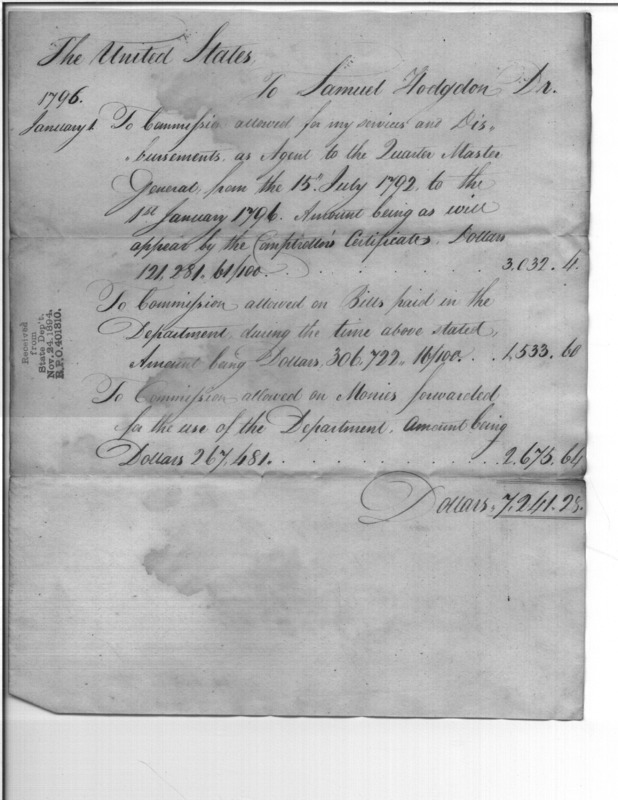 The United States
To Samuel Hodgdon Dr.
1796.
January 1 To Commission allowed for my services and Dis„
bursements, as Agent to the Quarter Master
General, from the 15th July 1792, to the
1st January 1796. Amount being as will
appear by the Comptrollers Certificates. Dollars
121,281. 61/100. . . . . . . . . . 3,032. 4.
To Commission allowed on Bills paid in the
Department, during the time above stated,
Amount being Dollars, 306,722„ 16/100. . . 1,533. 60
To Commission allowed on Monies forwarded
for the use of the Department. Amount being
Dollars 267,481. . . . . . . . . . 2,675. 64
Dollars, 7,241. 28.
Received
from
State Dep't,
Nov. 24, 1894.
R.P.O. 401310.